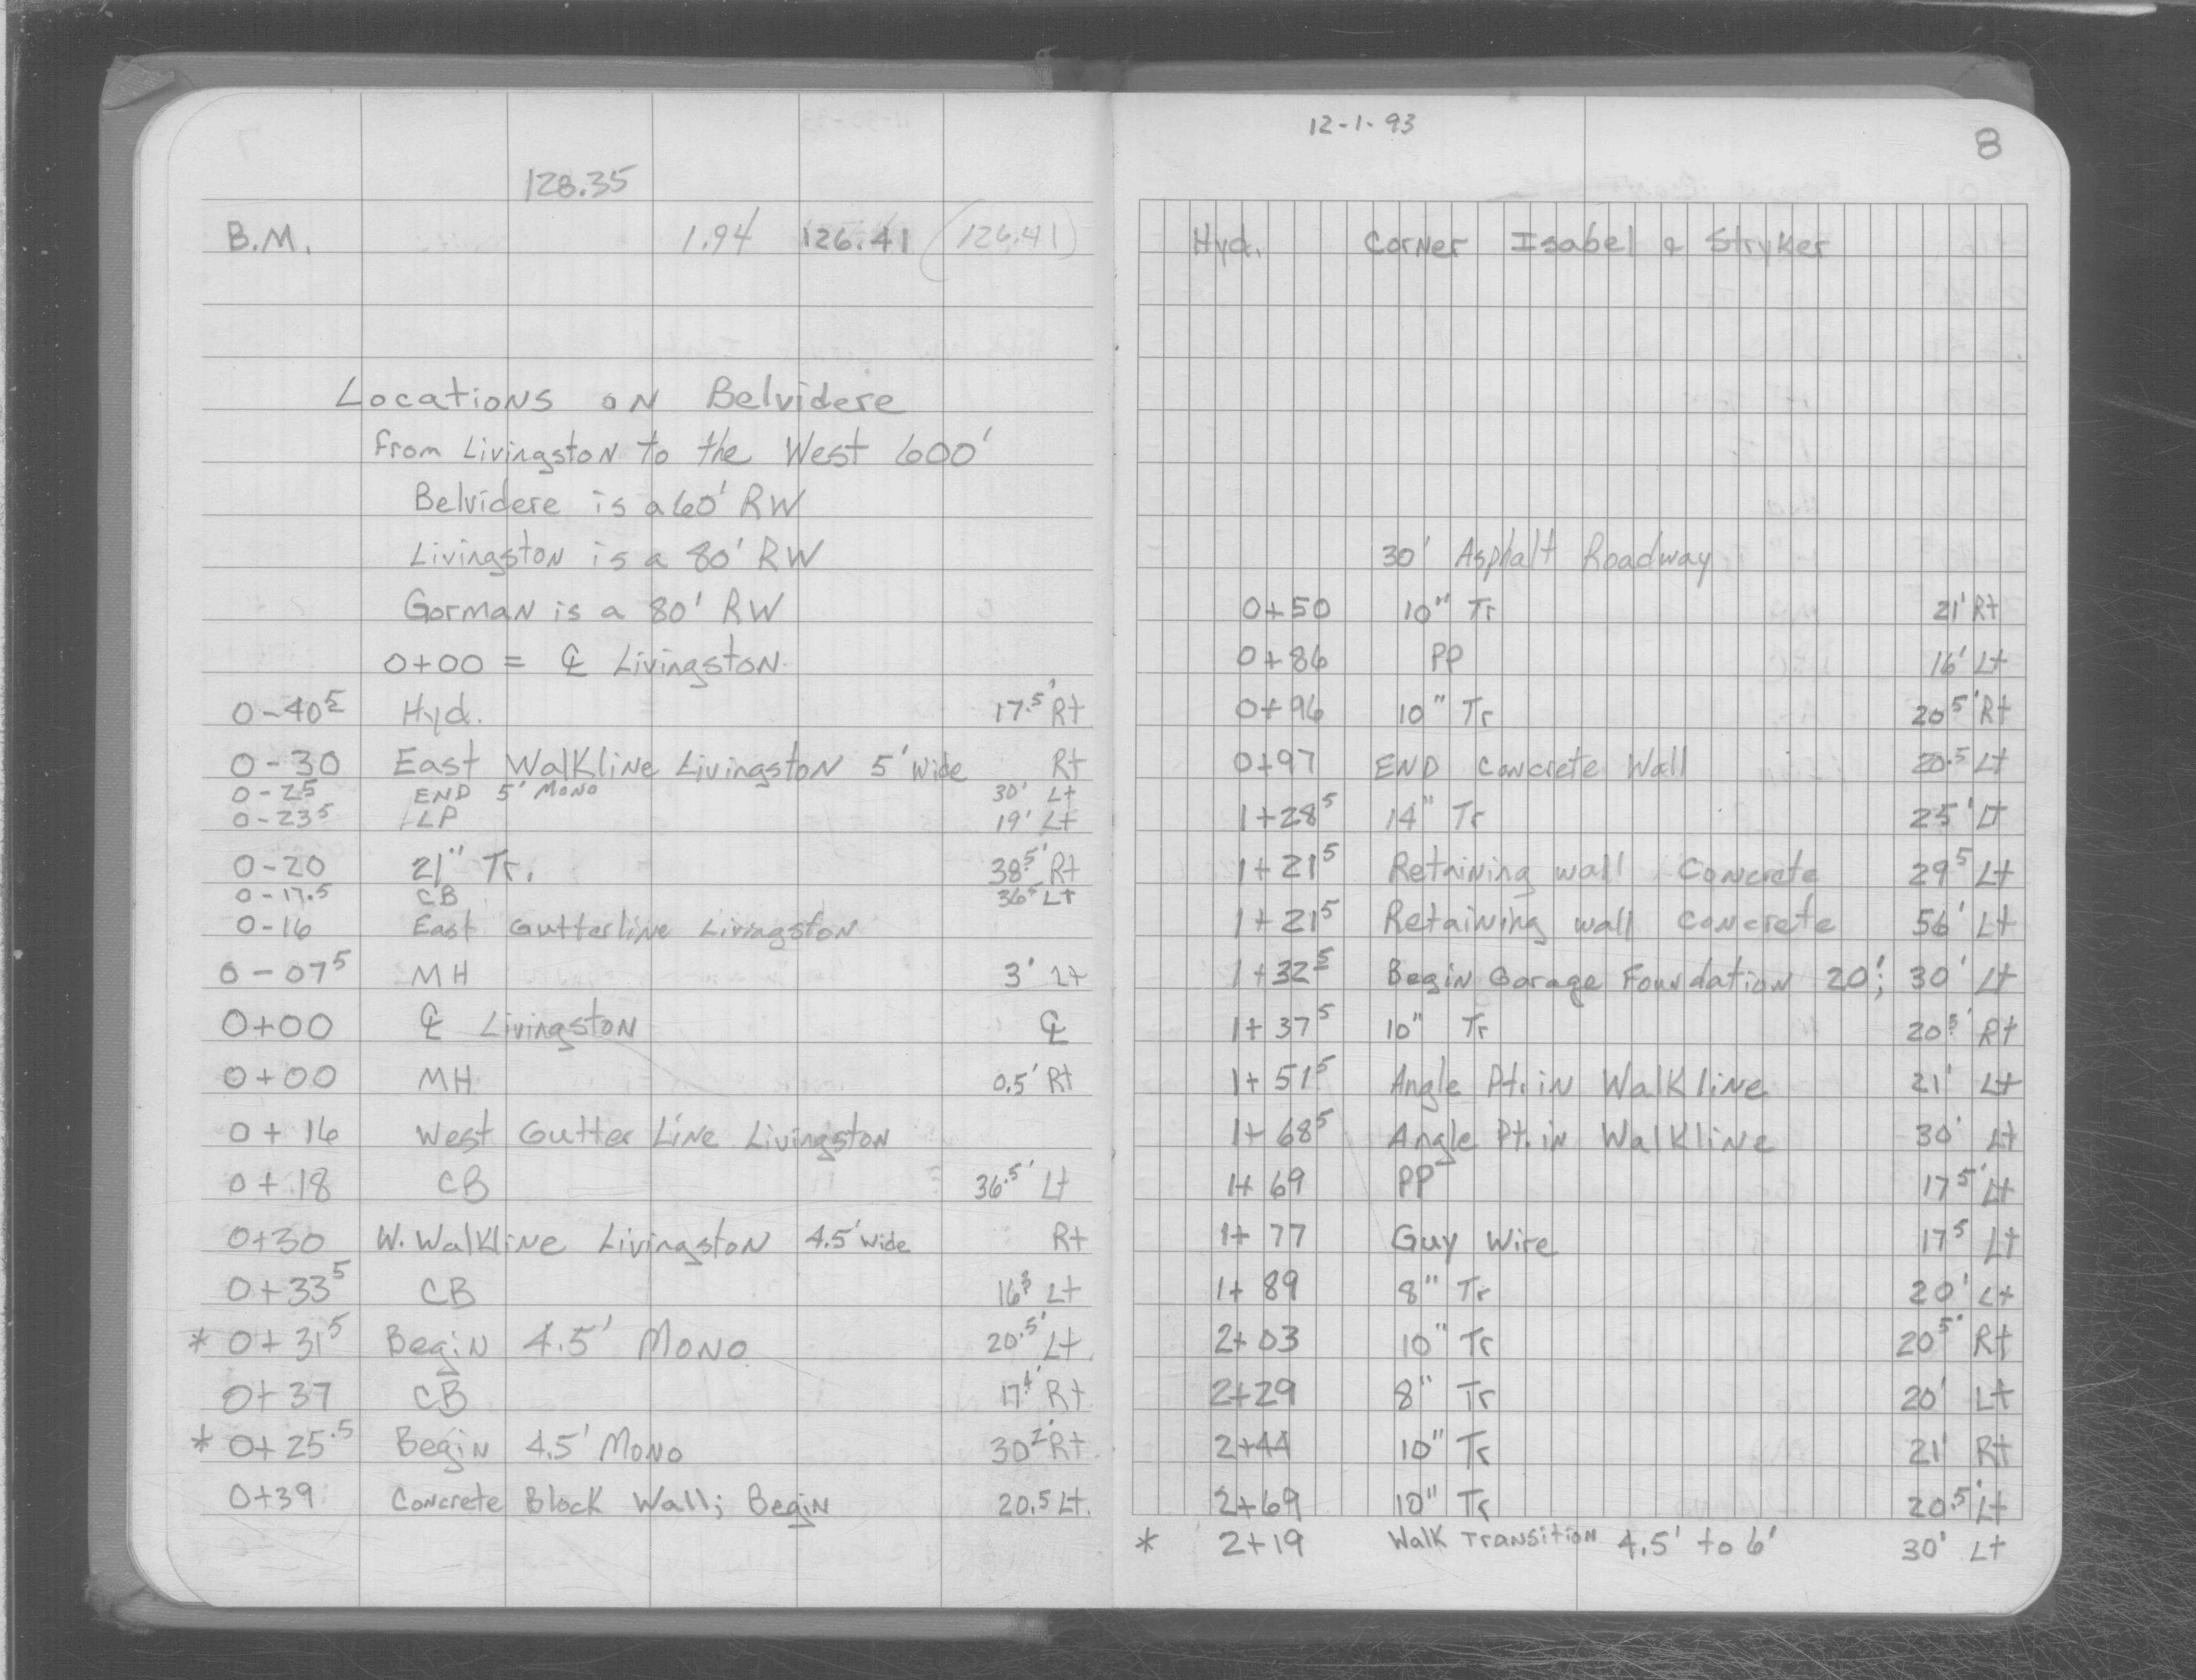 128.35
B.M. 1.94 126.41 (126.41)
Locations on Belvidere
From Livingston to the West 600'
Belvidere is a 60' RW
Livingston is a 80' RW
Gorman is a 80' RW
0+00 = ℄ Livingston
0-40⁵ Hyd. 17.⁵' Rt
0-30 East Walkline Livingston 5' Wide Rt
0-25 END 5' Mono 30' Lt
0-23⁵ LP 19' Lt
0-20 21" Tr. 38⁵' Rt
0-17.5 CB 36⁵' Lt
0-16 East Gutterline Livingston
0-07⁵ MH 3' Lt
0+00 ℄ Livingston ℄
0+00 MH 0.5' Rt
0+16 West Gutter Line Livingston
0+18 CB 36.⁵' Lt
0+30 W. Walkline Livingston 4.5' Wide Rt
0+33⁵ CB Lt
* 0+31⁵ Begin 4.5' Mono 20.⁵' Lt
0+37 CB 17⁴' Rt
* 0+25.⁵ Begin 4.5' Mono 30²' Rt
0+39 Concrete Block Wall; Begin 20.5 Lt.
12-1-93
8
Hyd. Corner Isabel & Stryker
30' Asphalt Roadway
0+50 10" Tr 21' Rt
0+86 PP 16' Lt
0+96 10" Tr 20⁵' Rt
0+97 END Concrete Wall 20.⁵ Lt
1+28⁵ 14" Tr 25' Lt
1+21⁵ Retaining wall Concrete 29⁵ Lt
1+21⁵ Retaining wall Concrete 56' Lt
1+32⁵ Begin Garage Foundation 20'; 30' Lt
1+37⁵ 10" Tr 20⁵' Rt
1+51⁵ Angle Pt. in Walkline 21' Lt
1+68⁵ Angle Pt. in Walkline 30' Lt
1+69 PP 17⁵' Lt
1+77 Guy Wire 17⁵ Lt
1+89 8" Tr 20' Lt
2+03 10" Tr 20⁵' Rt
2+29 8" Tr 20' Lt
2+44 10" Tr 21' Rt
2+69 10" Tr 20.⁵' Lt
* 2+19 Walk Transition 4.5' to 6' 30' Lt